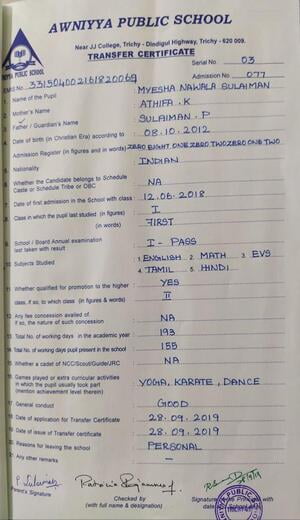 AWNIYYA PUBLIC SCHOOL
Near JJ College, Trichy - Dindigul Highway, Trichy - 620 009.
TRANSFER CERTIFICATE
AWNIYYA PUBLIC SCHOOL
Serial No. 03
EMIS No. 33150400216182006
Admission No. 077
1. Name of the Pupil MYESHA NAWALA SULAIMAN
2. Mother's Name ATHIFA . K
3. Father / Guardian's Name SULAIMAN . P
4. Date of birth (in Christian Era) according to 08.10.2012
Admission Register (in figures and in words) ZERO EIGHT ONE ZERO TWO ZERO ONE TWO
5. Nationality INDIAN
6. Whether the Candidate belongs to Schedule
Caste or Schedule Tribe or OBC NA
7. Date of first admission in the School with class 12.06.2018
8. Class in which the pupil last studied (in figures) I
(in words) FIRST
9. School / Board Annual examination
last taken with result I - PASS
10. Subjects Studied 1. ENGLISH 2. MATH 3 EVS
4 TAMIL 5. HINDI
11. Whether qualified for promotion to the higher YES
class, if so, to which class (in figures & words) II
12. Any fee concession availed of.
If so, the nature of such concession NA
13. Total No. of working days in the academic year 193
14. Total No. of working days pupil present in the school 155
15. Whether a cadet of NCC/Scout/Guide/JRC NA
16. Games played or extra curricular activities
in which the pupil usually took part YOGA, KARATE, DANCE
(mention achievement level therein)
17. General conduct GOOD
18. Date of application for Transfer Certificate 28.09.2019
19. Date of issue of Transfer certificate 28.09.2019
20. Reasons for leaving the school PERSONAL
21. Any other remarks -
Parent's Signature
Checked by
(with full name & designation)
Signature
with
date
School